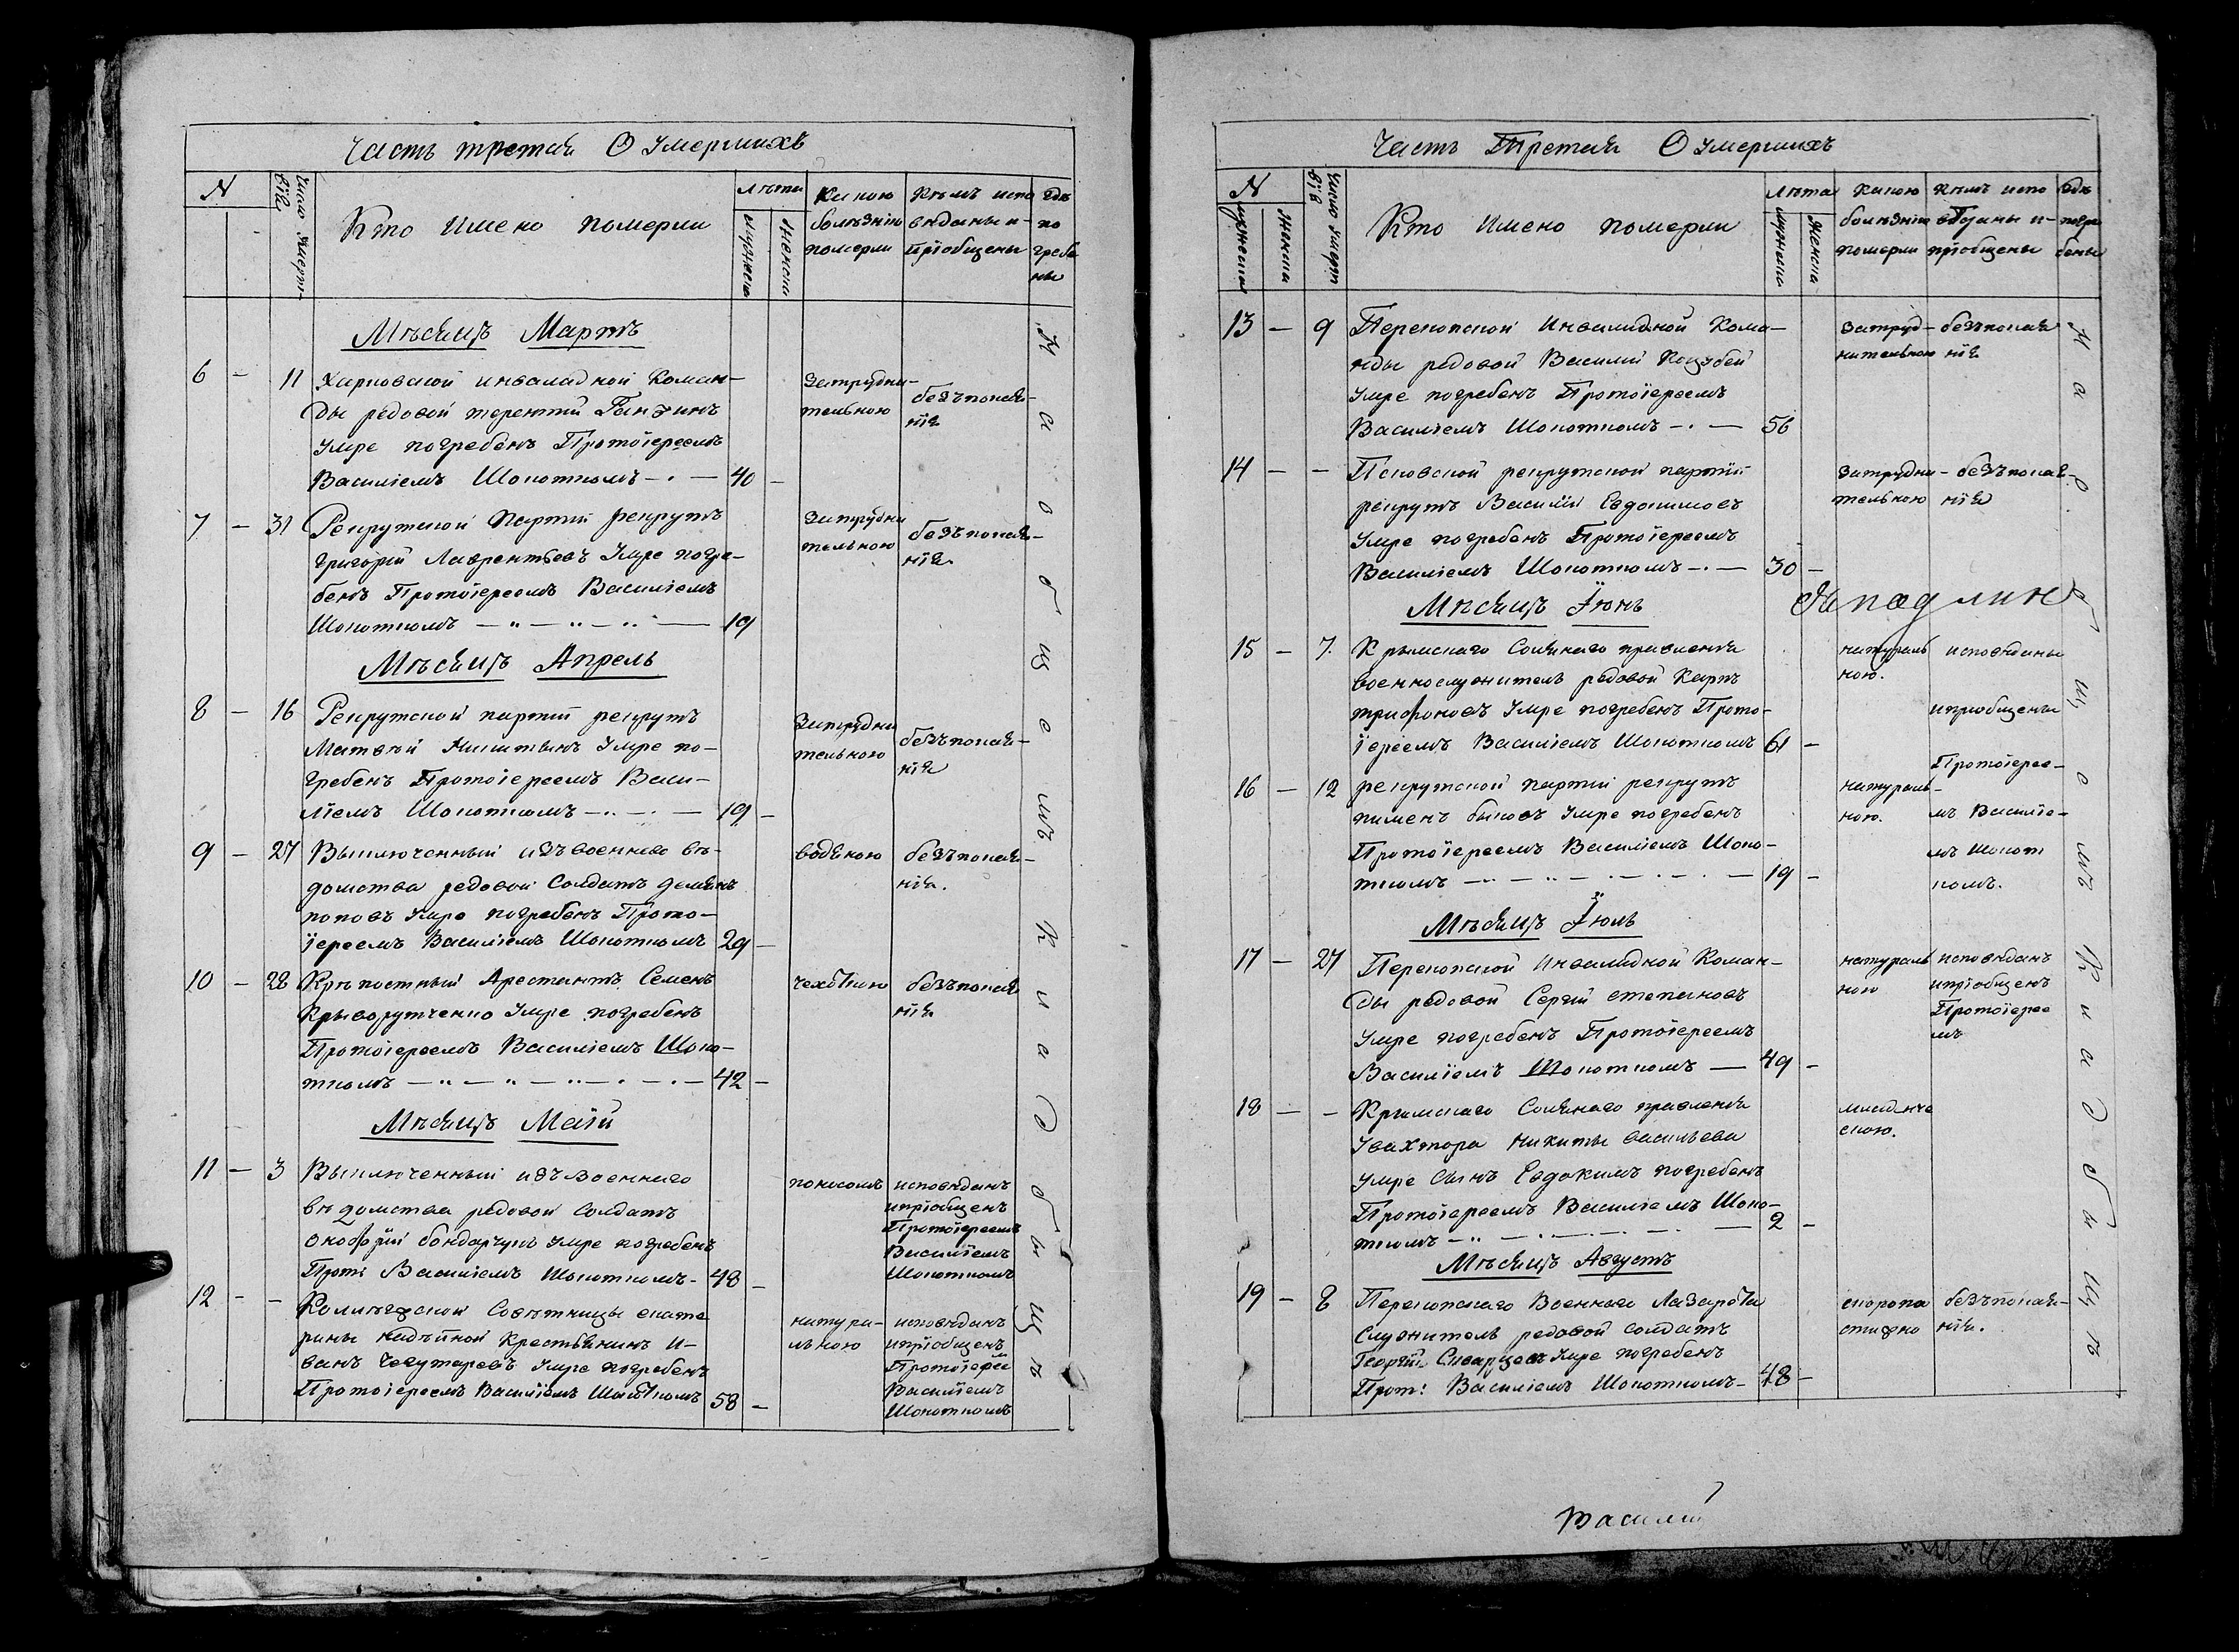 Часть третая О Умершихъ
N
Число Умерт-
вiя
Кто Имено померли
Лѣта
мужеска
женска
Какою
болѣзнiю
померли
Кѣмъ испо
вѣданы и-
прiобщены
Гдѣ
по
гребе
ны
Мѣсяцъ Мартъ
6 - 11 Харковской инвалидной Коман-
ды редовой терентiй
Умре погребенъ Протоiереемъ
Василiемъ Шокоткомъ - . - 40 -
Затрудни-
тельною
безъпокая-
нiя
7 - 31 Рекрутской Партiи рекрутъ
григорiй Лаврентьевъ Умре погре-
бенъ Протоiереемъ Василiемъ
Шокоткомъ - " - " - " - 19
Затрудни
тельною
безъпокая-
нiя.
Мѣсяцъ Апрель
8 - 16 Рекрутской партiи рекрутъ
Матвѣй Умре по-
гребенъ Протоiереемъ Васи-
лiемъ Шокоткомъ - .. - . - 19 -
Затрудни
тельною
безъпокая-
нiя
9 - 27 Выключенный изъ военнаго вѣ-
домства редовой Солдатъ демянъ
поповъ Умре погребенъ Прото-
iереемъ Василiемъ Шокоткомъ 29 -
водяною
безъпокая-
нiя.
10 - 28 Крѣпостный Арестантъ Семенъ
Криворутченко Умре погребенъ
Протоiереемъ Василiемъ Шоко-
ткомъ - " - " - " - . - . - 42 -
чехоткою
безъпокая
нiя
Мѣсяцъ Маiй
11 - 3 Выключенный изъ военнаго
вѣдомства редовой Солдатъ
онофрiй бондарчукъ Умре погребенъ
Прот: Василiемъ Шокоткомъ - 48 -
поносомъ
исповѣданъ
ипрiобщенъ
Протоiереемъ
Василiемъ
Шокоткомъ
12 - - Колижской Совѣтницы екате
рины крестьянинъ И-
ванъ Умре погребенъ
Протоiереемъ Василiемъ Шокоткомъ 58 -
натура-
льною
исповѣданъ
ипрiобщенъ
Протоiерем
Василiемъ
Шокоткомъ
На общемъ Кладбищѣ
Часть Третая О Умершихъ
N
мужеска
женска
Число Умерт
вiя
Кто Имено померли
Лѣта
мужеска
женска
Какою
болѣзнiю
померли
Кѣмъ испо
вѣданы и-
прiобщены
Гдѣ
погре
бены
13 - 9 Перекопской Инвалидной Кома-
нды редовой Василiй Коцюбей
Умре погребенъ Протоiереемъ
Василiемъ Шокоткомъ - . - 56
Затруд-
нительною
безъпокая
нiя
14 - - Псковской рекрутской партiи
рекрутъ Василiй Евдокимовъ
Умре погребенъ Протоiереемъ
Василiемъ Шокоткомъ - . - 30 -
Затрудни-
тельною
безъпокая-
нiя
Мѣсяцъ Iюнь
15 - 7. Крымскаго Солянаго правленiя
военнослужитель редовой Карпъ
трифоновъ Умре погребенъ Прото-
iереемъ Василiемъ Шокоткомъ 61 -
натураль
ною.
исповѣданы
ипрiобщены
Протоiерее-
мъ Василiе-
мъ Шокот
комъ.
16 - 12 рекрутской партiи рекрутъ
пименъ быковъ Умре погребенъ
Протоiереемъ Василiемъ Шоко-
ткомъ - .. - .. - . - . - . - 19 -
натураль-
ною.
Мѣсяцъ Iюль
17 - 27 Перекопской Инвалидной Коман-
ды редовой Сергiй степановъ
Умре погребенъ Протоiереемъ
Василiемъ Шокоткомъ - 49 -
натураль
ною
исповѣданъ
ипрiобщенъ
Протоiерее
мъ
18 - - Крымскаго Солянаго правленiя
Увахтора Никиты васильева
Умре Сынъ Евдокимъ погребенъ
Протоiереемъ Василiемъ Шоко-
ткомъ - .. - . - . - 2 -
младенче
скою.
Мѣсяцъ Августъ
19 - 8 Перекопскаго Военнаго Лазарета
Служитель редовой солдатъ
Георгiй Умре погребенъ
Прот: Василiемъ Шокоткомъ - 48 -
скоропо
стижно
безъпокая-
нiя.
На общемъ Кладбищѣ
Василiй